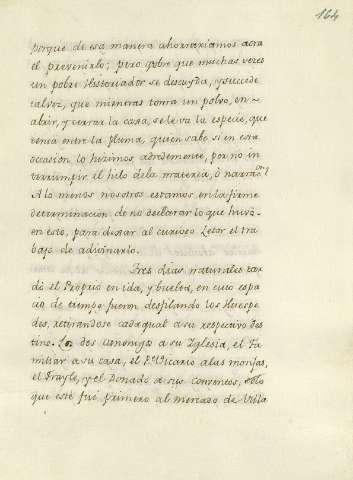 164
porque de esa manera ahorrariamos aora
el prevenirlo; pero sobre que muchas veces
un pobre Historiador se descuyda, y sucede
talvez, que mientras toma un polvo, en
abrir, y cerrar la caxa, se le va la especie, que
tenia entre la pluma, quien sabe si en esta
ocasion lo hizimos adredemente, por no in
terrumpir el hilo dela materia, ò narraon?
A lo menos nosotros estamos en la firme
determinacion de no declarar lo que huvo
en esto, para dexar al curioso Letor el tra
bajo de adivinarlo.
Tres dias naturales tar
dò el Proprio en ida, y buelta, en cuio espa
cio de tiempo fueron desfilando los Huespe
des, retirandose cadaqual a su respectivo des
tino. Los dos Canonigos a su Iglesia, el Fa
miliar a su casa, el P. Vicario alas monjas,
el Frayle, y el Donado a sus Conventos, solo
que este fuè primero al mercado de Villa